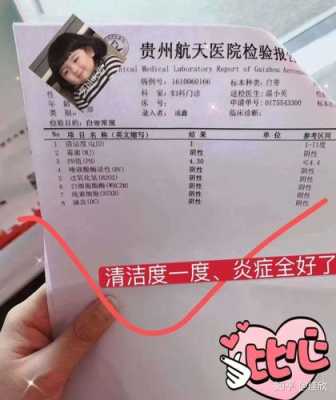 贵州航天医院检验报告
Medical Laboratory Report of Guizhou Aero
病例号: 1610060166 标本种类: 白带
科室: 妇科门诊 送检医生: 温小英
年龄 床号: 申请单号: 0175543300
临床诊断:
检验目的: 白带常规
No 项目名称(英文缩写) 结果 单位 参考区间
1 清洁度(QJD) I I-II度
2 霉菌(MJ) 阴性 阴性
3 PH值(PH) 4.30 ≤4.4
4 唾液酸酶活性(BV) 阴性 阴性
5 过氧化氢(H2O2) 阴性 阴性
6 白细胞酯酶 阴性 阴性
7 阴性 阴性
8 滴虫(DC) 阴性 阴性
清洁度一度、炎症全好了
比心
知乎